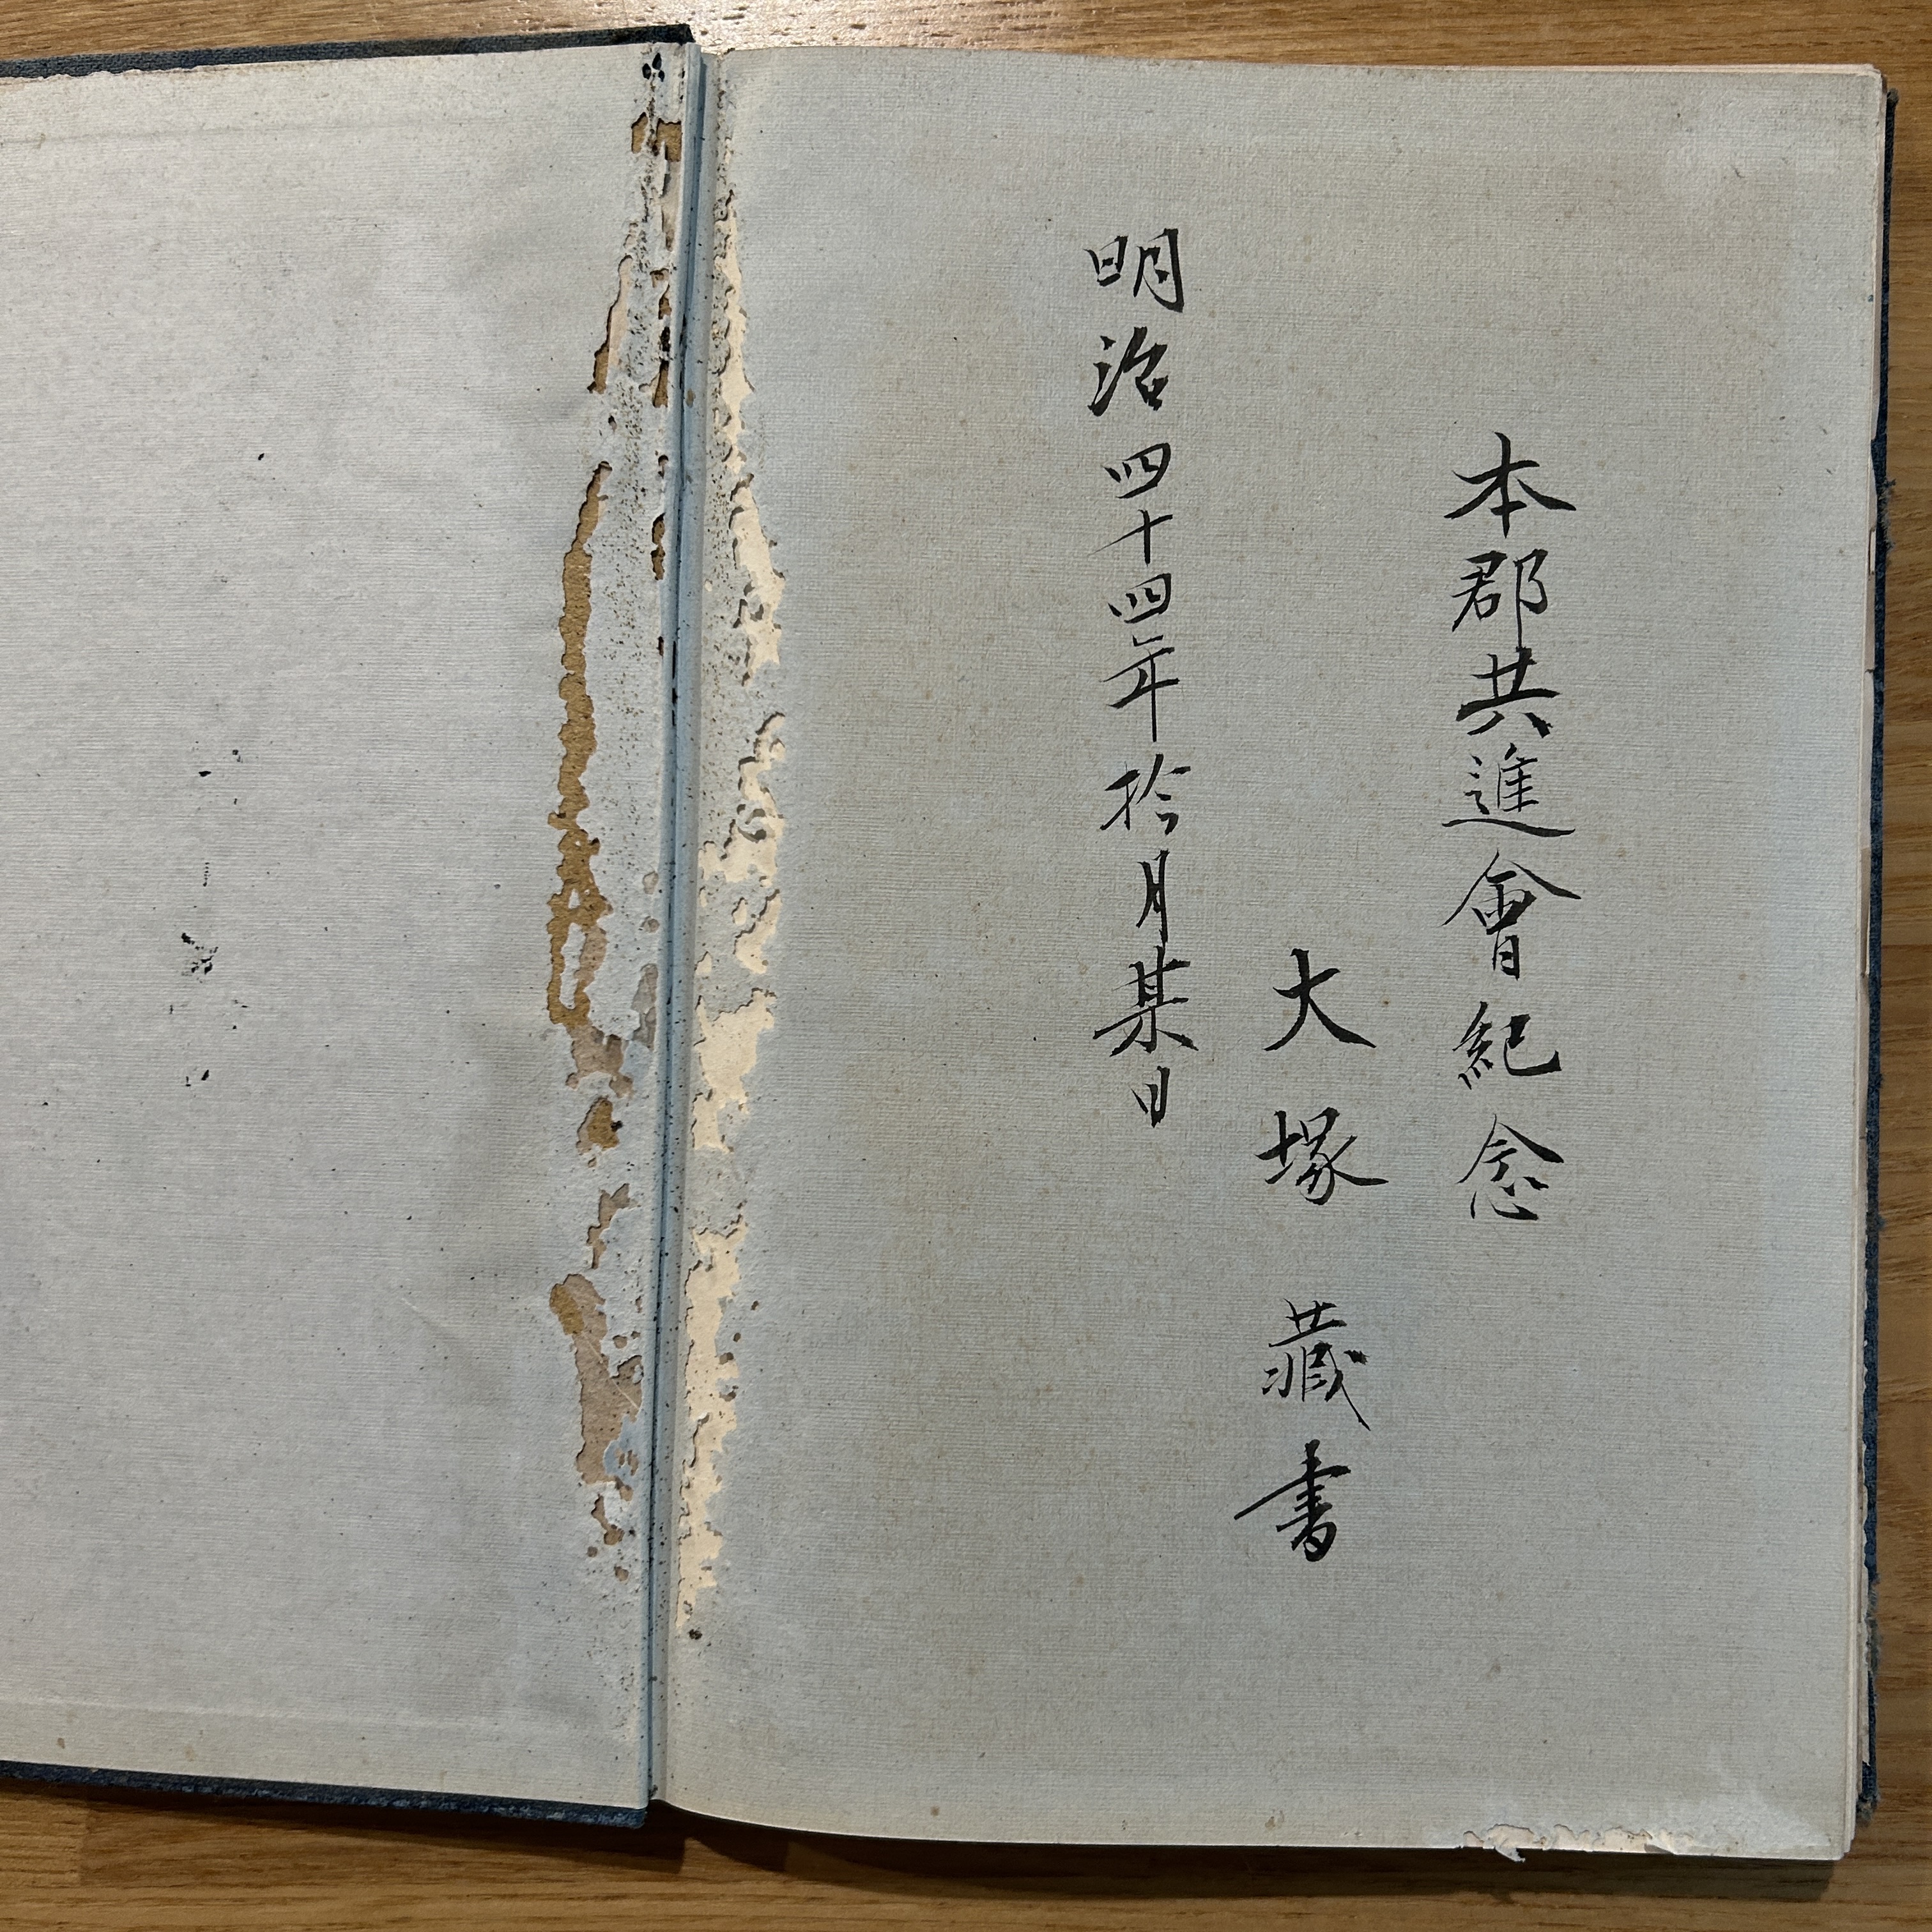 本郡共進會紀念
大塚藏書
明治四十四年拾月某日